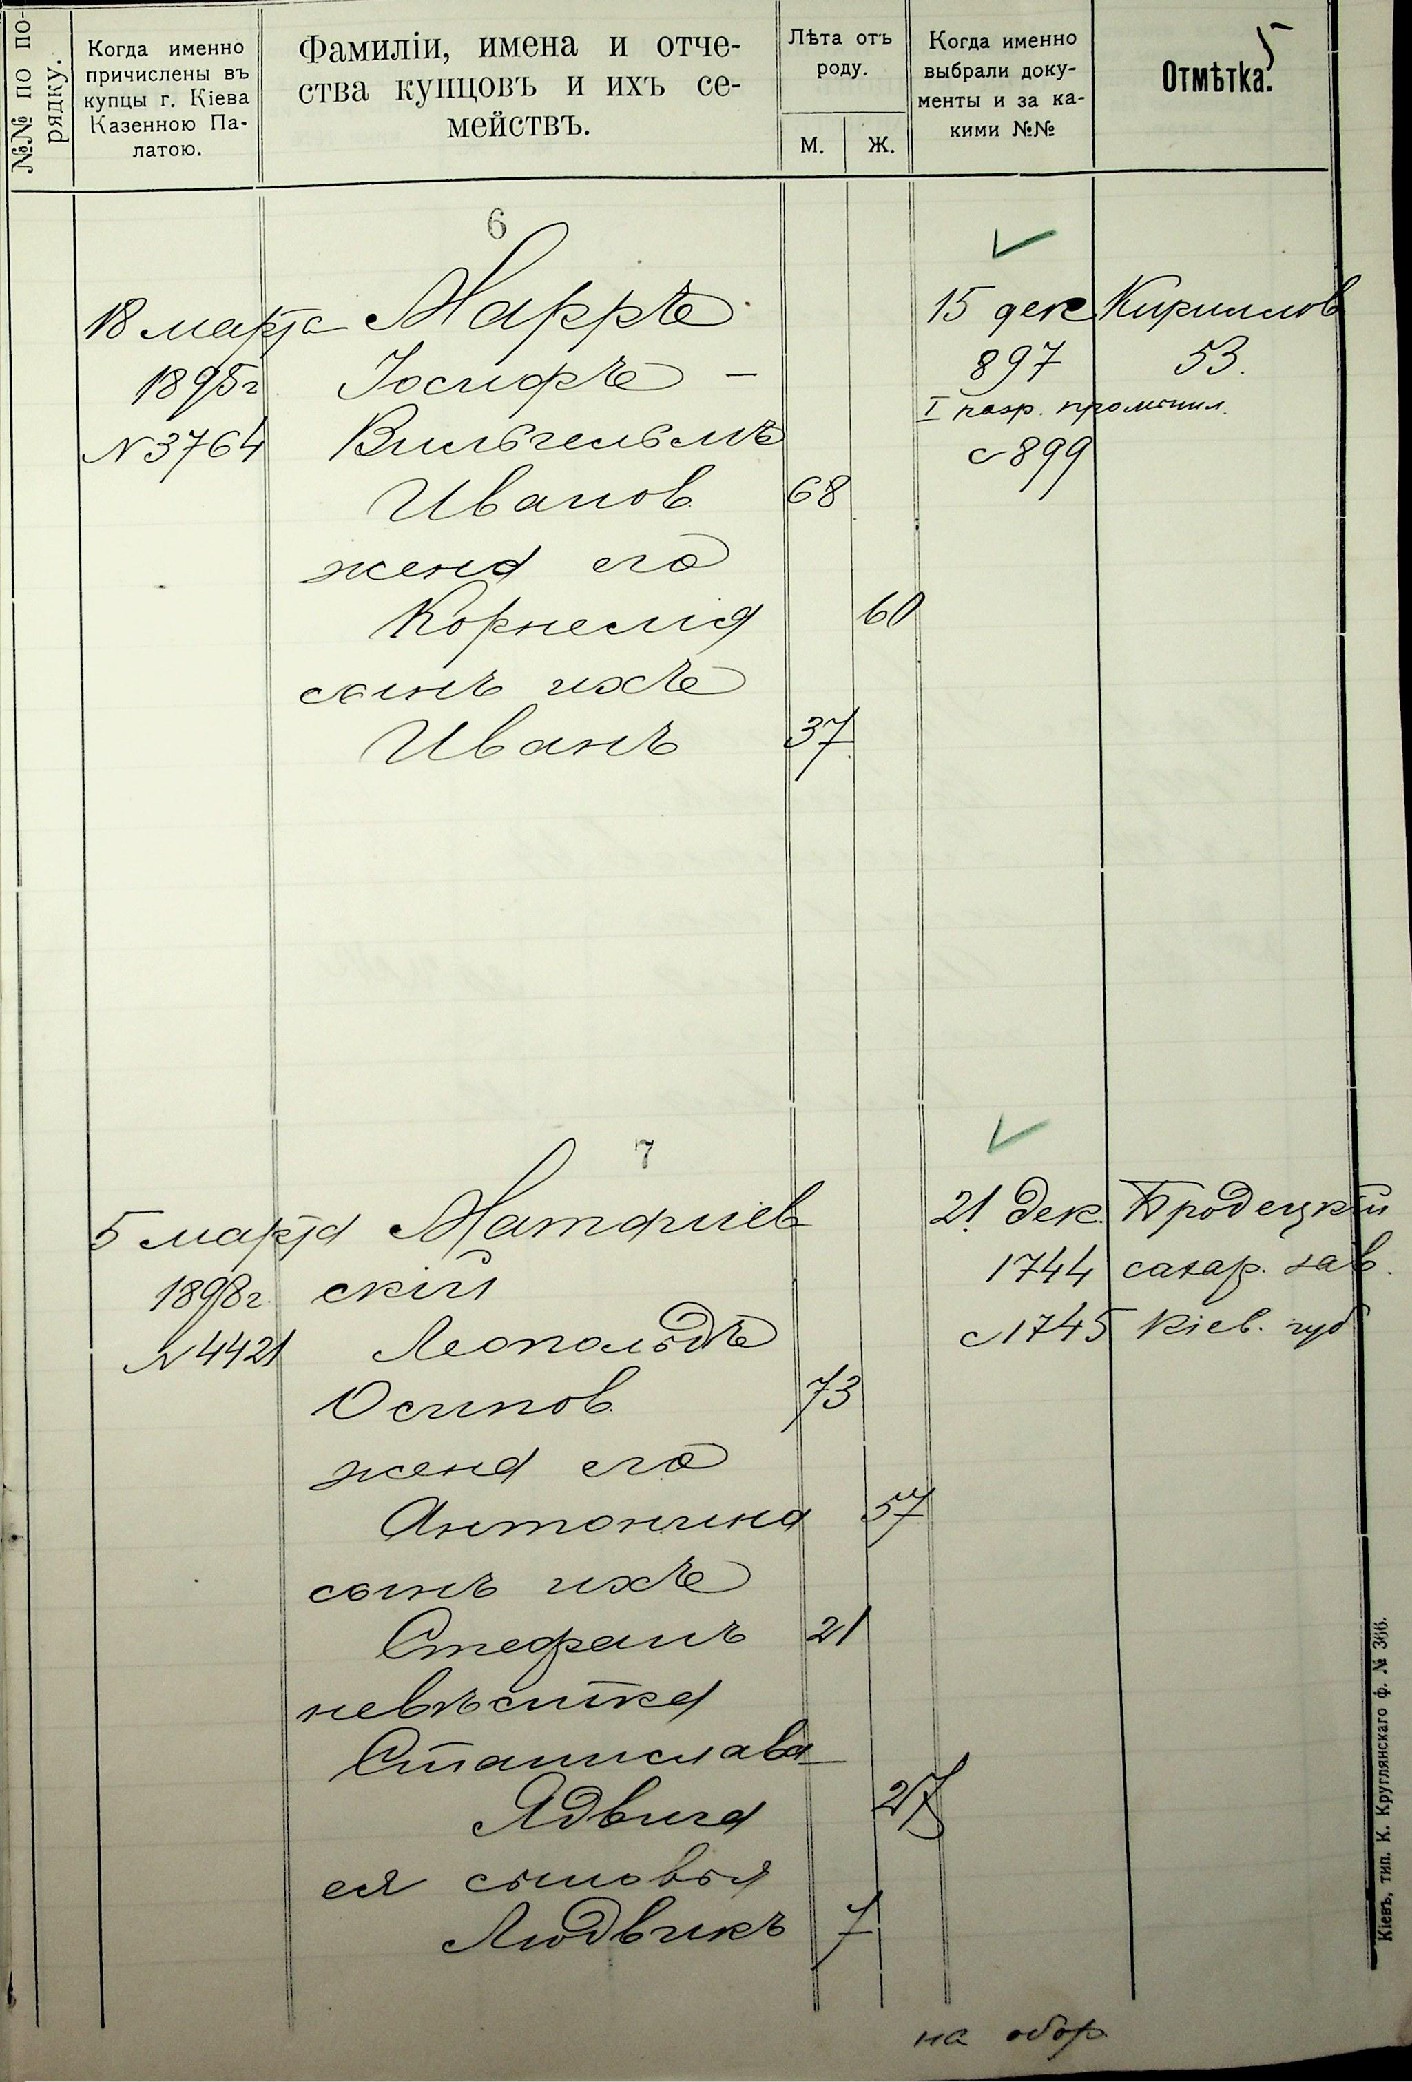 №№ по по-
рядку.
Когда именно
причислены въ
купцы г. Кіева
Казенною Па-
латою.
Фамиліи, имена и отче-
ства купцовъ и ихъ се-
мействъ.
Лѣта отъ
роду.
М.
Ж.
Когда именно
выбрали доку-
менты и за ка-
кими №№
Отмѣтка.
5
6
18 марта
1895г
№3764
Марръ
Іосифъ —
Вильгельмъ
Иванов 68
жена его
Корнелія 60
сынъ ихъ
Иванъ 37
15 дек
897
I разр. промышл.
с 899
Кириллов
53.
7
5 марта
1898г.
№4421
Матфиев
скій
Леопольдъ
Осипов 73
жена его
Антонина 57
сынъ ихъ
Стефанъ 21
невѣстка
Станислава
Ядвига 27
ея сыновья
Людвикъ 7
21 дек.
1744
с 1745
Бродецкій
сахар. зав.
Кіев. губ
на обор
Кіевъ, тип. К. Круглянскаго ф. № 366.